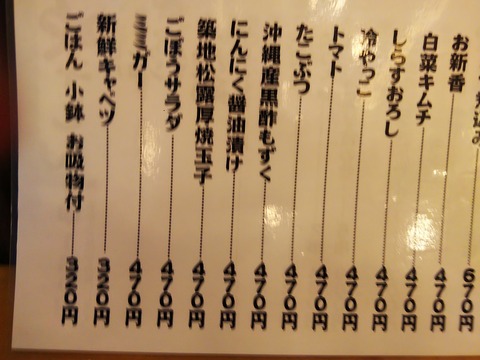 670円
お新香 470円
白菜キムチ 470円
しらすおろし 470円
冷やっこ 470円
トマト 470円
たこぶつ 470円
沖縄産黒酢もずく 470円
にんにく醤油漬け 470円
築地松露厚焼玉子 470円
ごぼうサラダ 470円
ミミガー 470円
新鮮キャベツ 320円
ごはん 小鉢 お吸物付 320円